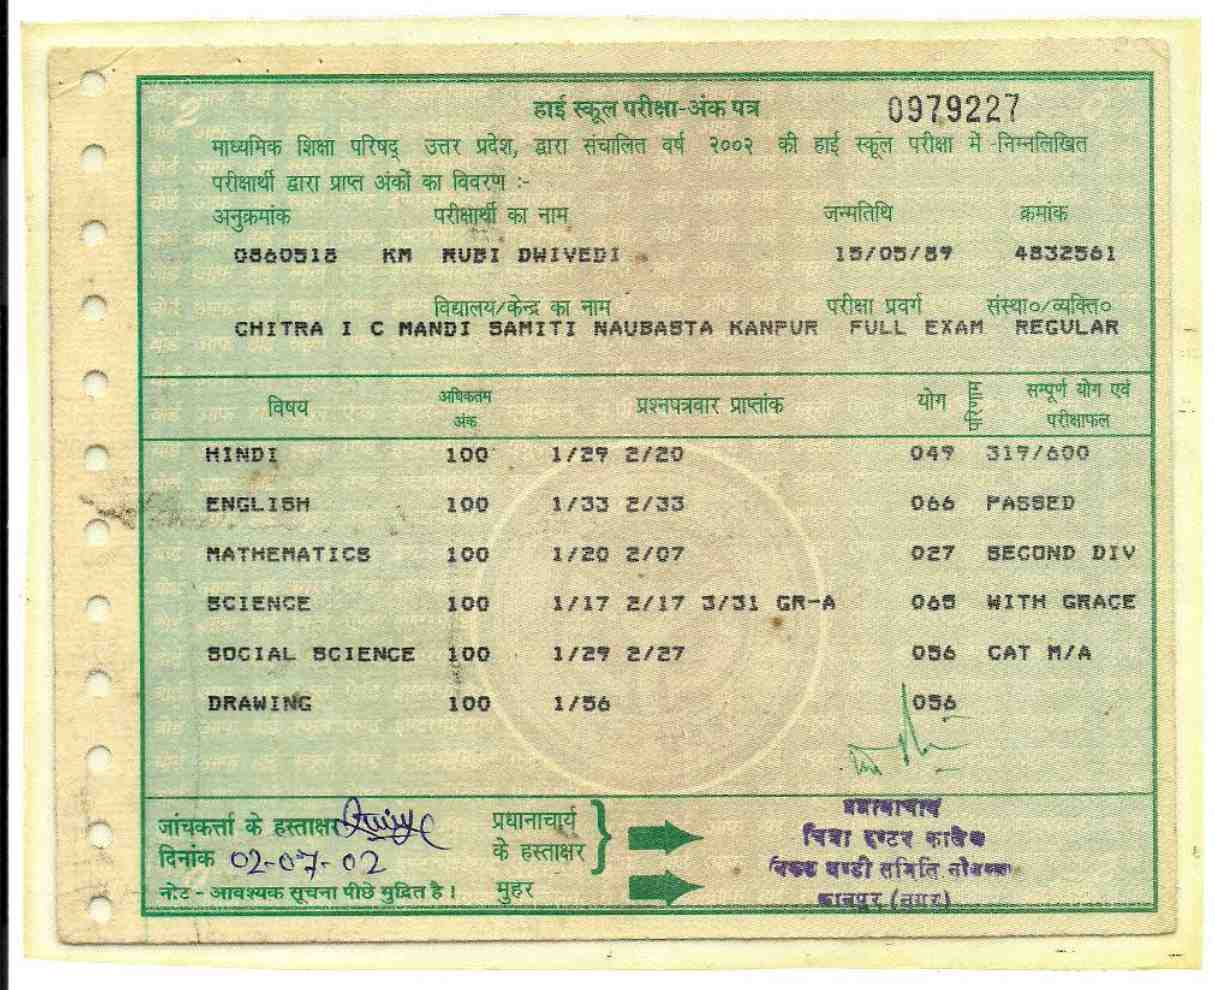 हाई स्कूल परीक्षा-अंक पत्र 0979227
माध्यमिक शिक्षा परिषद् उत्तर प्रदेश, द्वारा संचालित वर्ष २००२ की हाई स्कूल परीक्षा में निम्नलिखित
परीक्षार्थी द्वारा प्राप्त अंकों का विवरण :-
अनुक्रमांक परीक्षार्थी का नाम जन्मतिथि क्रमांक
0860518 KM RUBI DWIVEDI 15/05/89 4832561
विद्यालय/केन्द्र का नाम परीक्षा प्रवर्ग संस्था०/व्यक्ति०
CHITRA I C MANDI SAMITI NAUBASTA KANPUR FULL EXAM REGULAR
विषय अधिकतम अंक प्रश्नपत्रवार प्राप्तांक योग परिणाम सम्पूर्ण योग एवं परीक्षाफल
HINDI 100 1/29 2/20 049 319/600
ENGLISH 100 1/33 2/33 066 PASSED
MATHEMATICS 100 1/20 2/07 027 SECOND DIV
SCIENCE 100 1/17 2/17 3/31 GR-A 065 WITH GRACE
SOCIAL SCIENCE 100 1/29 2/27 056 CAT M/A
DRAWING 100 1/56 056
जांचकर्त्ता के हस्ताक्षर प्रधानाचार्य के हस्ताक्षर
दिनांक 02-07-02
नोट - आवश्यक सूचना पीछे मुद्रित है। मुहर
प्रधानाचार्य
चित्रा इण्टर कालेज
निकट मण्डी समिति नौबस्ता
कानपुर (नगर)